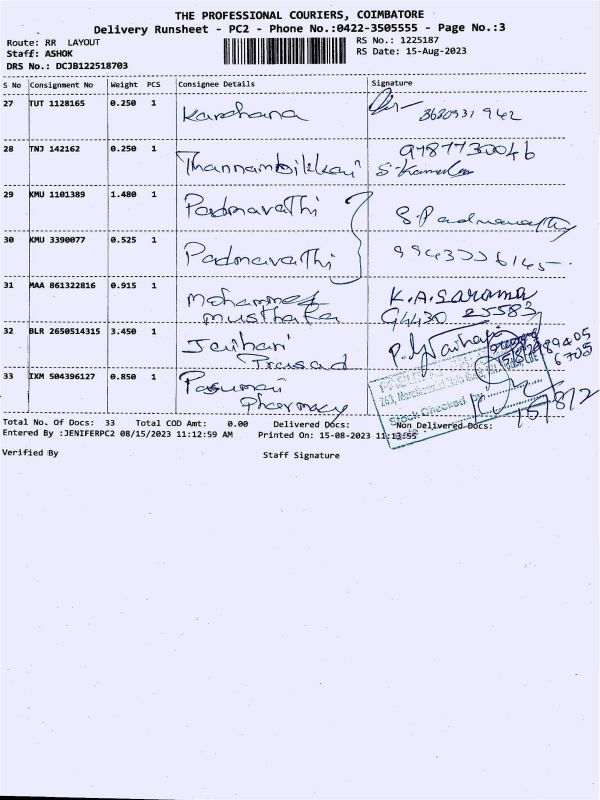 THE PROFESSIONAL COURIERS, COIMBATORE
Delivery Runsheet - PC2 - Phone No.:0422-3505555 - Page No.:3
Route: RR LAYOUT
RS No.: 1225187
Staff: ASHOK
RS Date: 15-Aug-2023
DRS No.: DCJB122518703
S No Consignment No Weight PCS Consignee Details Signature
27 TUT 1128165 0.250 1 Karchana
28 TNJ 142162 0.250 1 Thannambikkai 9787730046
29 KMU 1101389 1.480 1 Padmavathi S.Padmavathy
30 KMU 3390077 0.525 1 Padmavathi
31 MAA 861322816 0.915 1 Mohammed K.A.Sarama
Musthafa 94430 25583
32 BLR 2650514315 3.450 1 Jaihari
Prasad
33 IXM 504396127 0.850 1 Pasumai
Pharmacy
Stock Checked
Total No. Of Docs: 33 Total COD Amt: 0.00 Delivered Docs: Non Delivered Docs:
Entered By :JENIFERPC2 08/15/2023 11:12:59 AM Printed On: 15-08-2023 11:13:55
Verified By Staff Signature